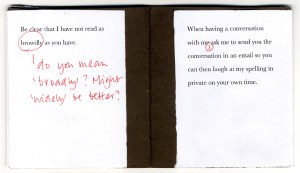 Be clear that I have not read as
browdly as you have.
do you mean
'broadly'? Might
'widely' be better?
When having a conversation
with me ask me to send you the
conversation in an email so you
can then laugh at my spelling in
private on your own time.